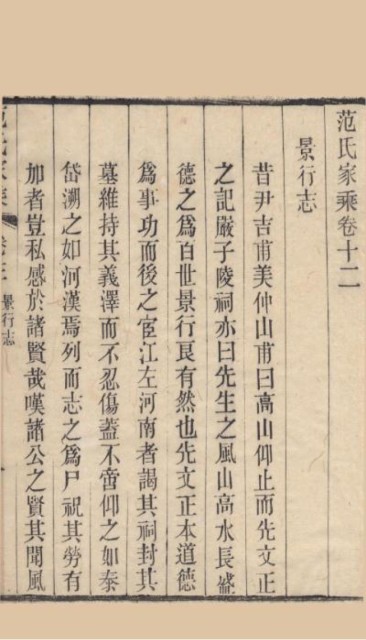 范氏家乘卷十二
景行志
昔尹吉甫美仲山甫曰高山仰止而先文正
之記嚴子陵祠亦曰先生之風山高水長盖
德之爲百世景行良有然也先文正本道德
爲事功而後之宦江左河南者謁其祠封其
墓維持其義澤而不忍傷蓋不啻仰之如泰
岱溯之如河漢焉列而志之爲尸祝其勞有
加者豈私感於諸賢哉嘆諸公之賢其聞風
范氏家乘 卷十二 景行志